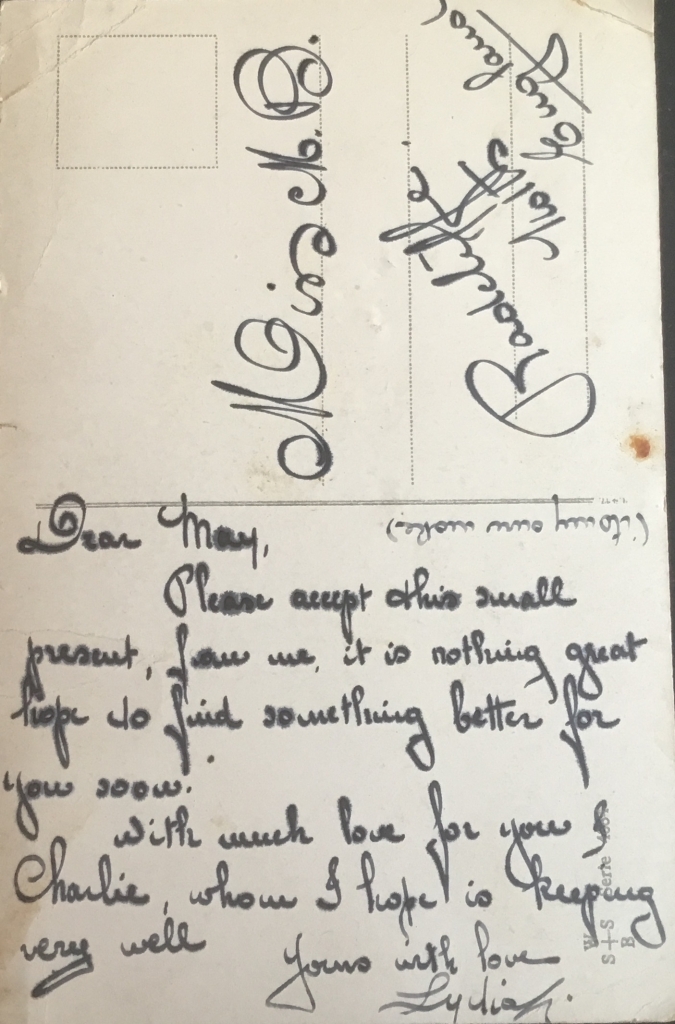 Dear May,
(its my own make)
Please accept this small
present, from me, it is nothing great
hope to find something better for
you soon.
With much love for you &
Charlie, whom I hope is keeping
very well
Yours with love
Lydia
Miss M. B.
Radcliffe
Notts
England
W
S+S Serie
B